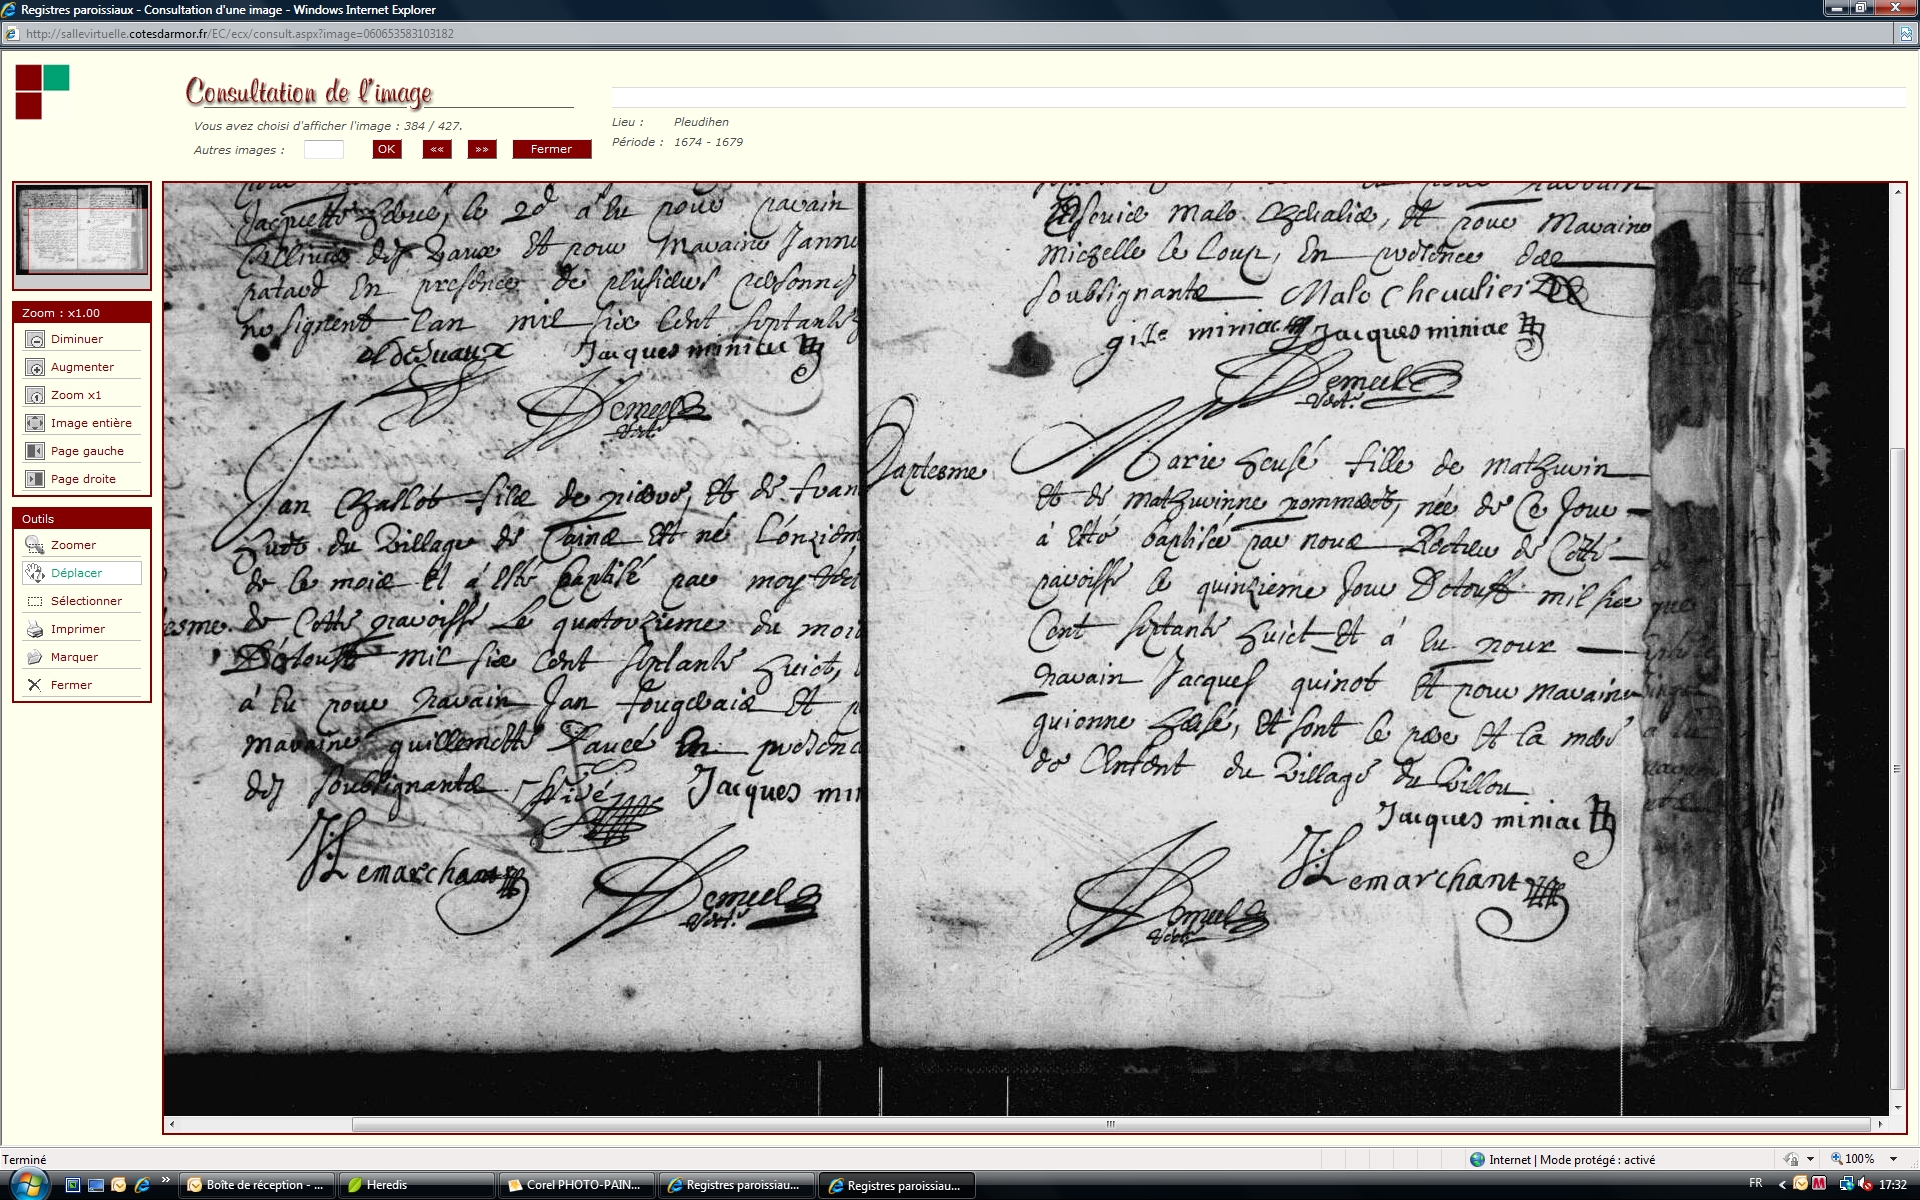 Registres paroissiaux - Consultation d'une image - Windows Internet Explorer
http://sallevirtuelle.cotesdarmor.fr/EC/ecx/consult.aspx?image=060653583103182
Consultation de l'image
Vous avez choisi d'afficher l'image : 384 / 427.
Autres images :
OK
««
»»
Fermer
Lieu : Pleudihen
Période : 1674 - 1679
Zoom : x1.00
Diminuer
Augmenter
Zoom x1
Image entière
Page gauche
Page droite
Outils
Zoomer
Déplacer
Sélectionner
Imprimer
Marquer
Fermer
le 20 a Eu pour parain
Et pour Maraine Janne
En presence de plusieurs personnes
ne signent Lan mil six Cent septante
Jacques miniac
Jan Challot fils de pierre, et de Fran
du Village de Est né L'onziem
de ce mois et à esté Baptisé par moy
de Cette paroisse Le quatorzieme du moi
D'Aoust mil six Cent septante huict,
à Eu pour parain Jan Fougerais Et p
maraine guillemette En presenc
des soubsignants
Jacques mi
Lemarchant
Demeel
Malo Chevalier, Et pour Maraine
Michelle le Loup, En presence des
soubsignants Malo Chevalier
gille miniac Jacques miniac
Demeel
Baptesme
Marie heusé fille de mathurin
et de mathurinne née de Ce Jour
à Esté baptisée par nous Recteur de Cette
paroisse le quinzieme Jour D'Aoust mil six
Cent septante huict Et à Eu pour
parain Jacques quinot Et pour maraine
guionne heusé, Et sont le pere Et la mere
de L'enfent du Village du Villou
Jacques miniac
Lemarchant
Demeel
Terminé
Internet | Mode protégé : activé
100%
Boîte de réception - ...
Heredis
Corel PHOTO-PAIN...
Registres paroissiau...
Registres paroissiau...
FR
17:32